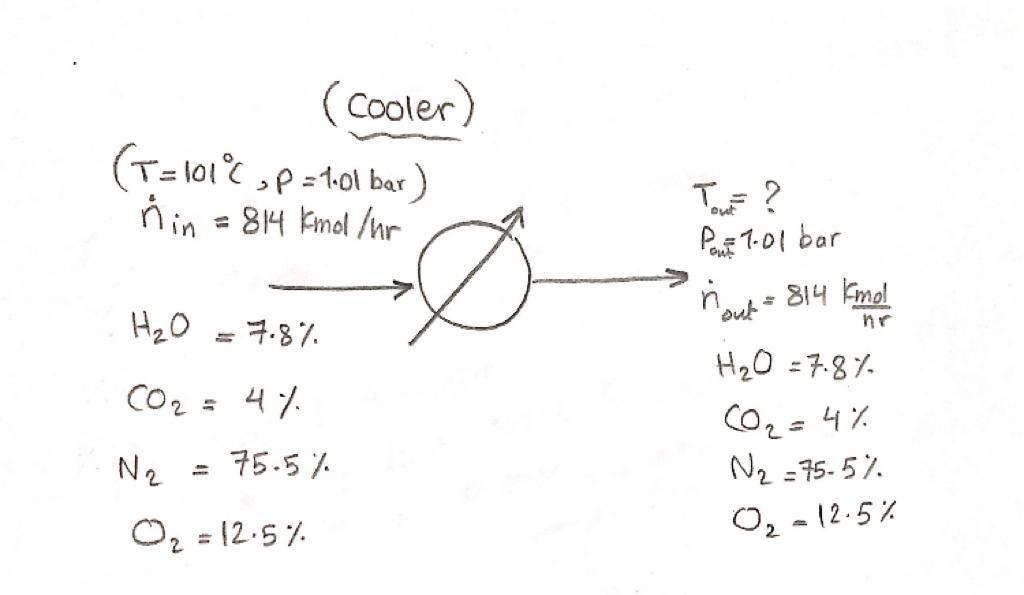 (Cooler)
(T=101°C, P=1.01 bar)
ṅin = 814 Kmol/hr
H₂O = 7.8%
CO₂ = 4%
N₂ = 75.5%
O₂ = 12.5%
Tout = ?
Pout = 1.01 bar
ṅout = 814 Kmol/hr
H₂O = 7.8%
CO₂ = 4%
N₂ = 75.5%
O₂ = 12.5%